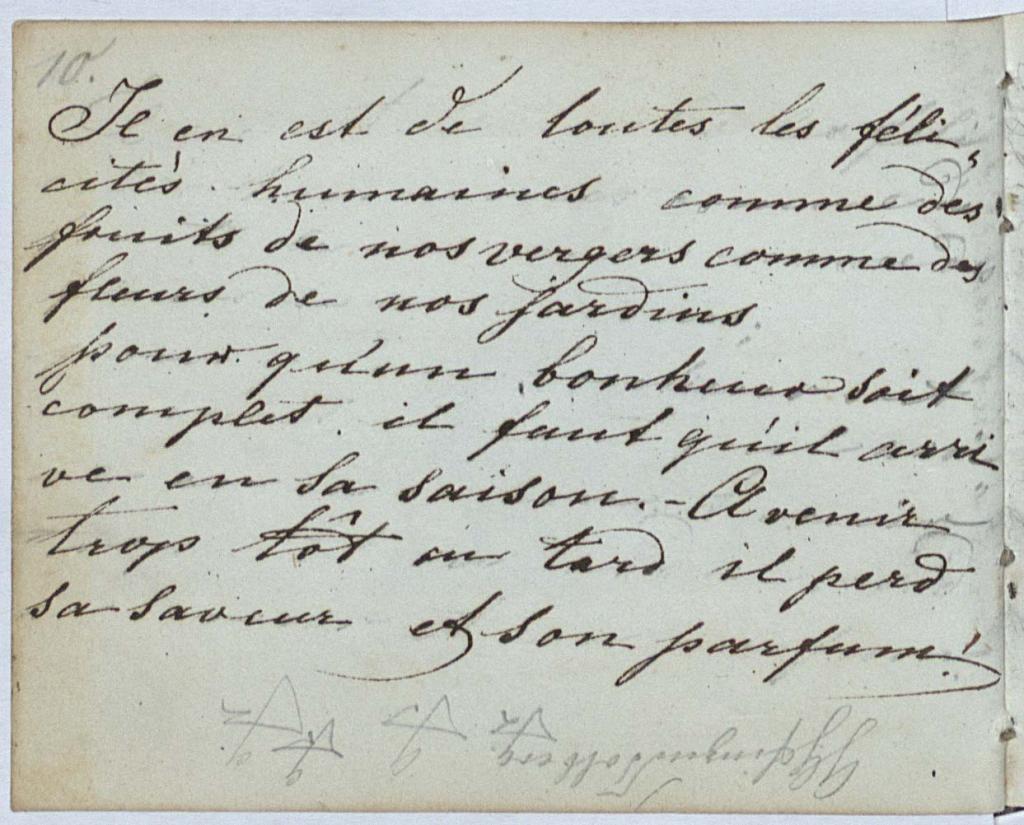 10.
Il en est de toutes les féli„
cités humaines comme des
fruits de nos vergers comme des
fleurs de nos jardins
pour qu'un bonheur soit
complet. il faut qu'il arri
ve en sa saison. - A venir
trop tôt ou tard il perd
sa saveur et son parfum!